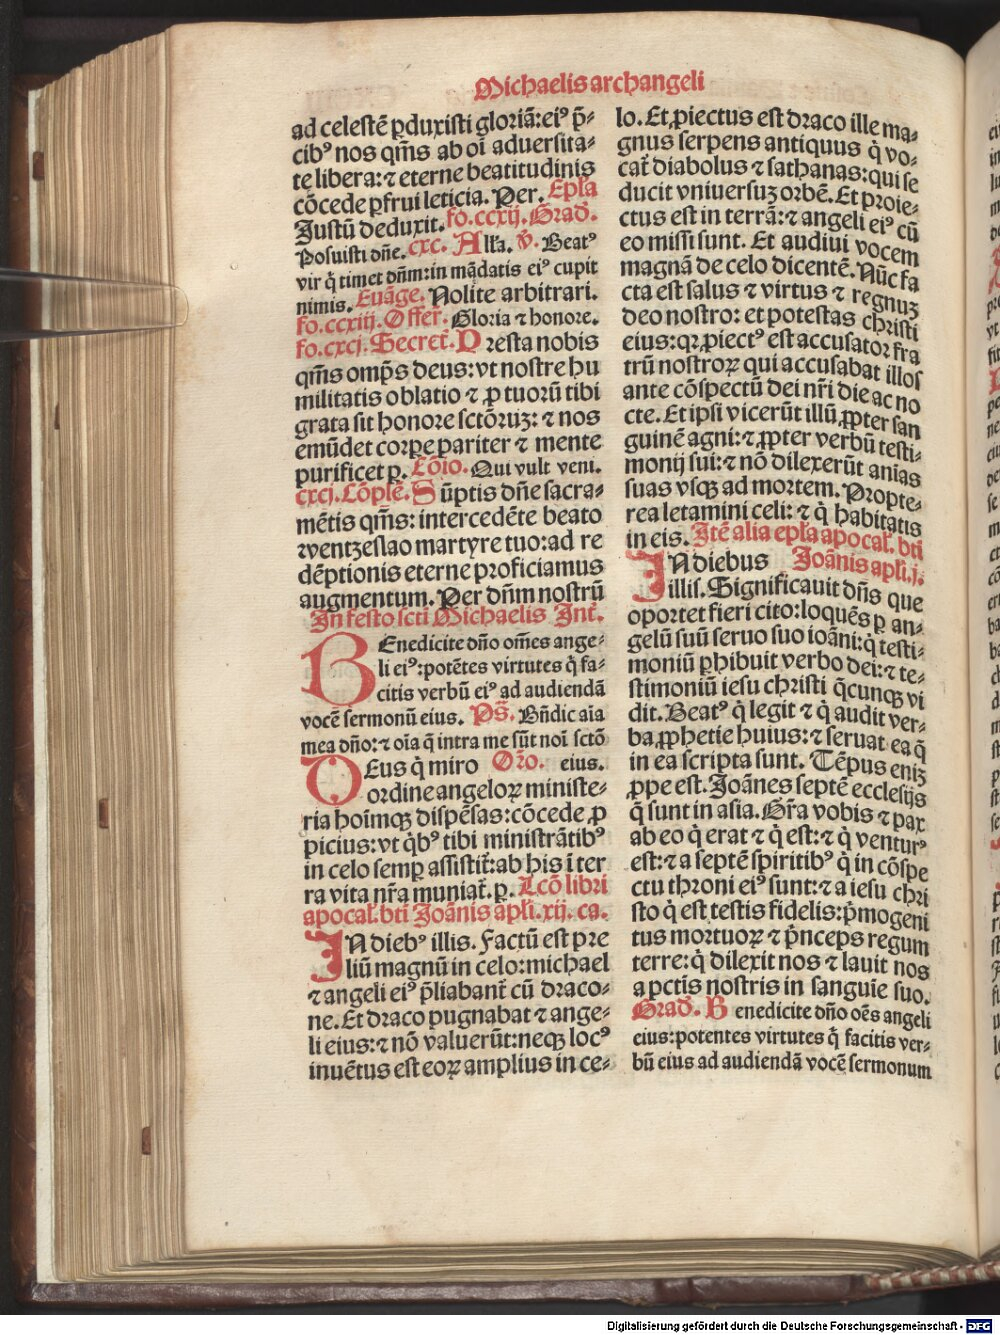 Michaelis archangeli
ad celestē ꝑduxisti gloriā: eiꝰ p̄-
cibꝰ nos qm̄s ab oī aduersita-
te libera: ⁊ eterne beatitudinis
cōcede ꝑfrui leticia. Per. Epl̄a
Justū deduxit. fo. ccxij. Grad̄.
Posuisti dn̄e. cxc. All̄a. v̄. Beatꝰ
vir q̇ timet dn̄m: in mādatis eiꝰ cupit
nimis. Euāge. Nolite arbitrari.
fo. ccxiij. Offer̄. Gloria ⁊ honore.
fo. cxcj. Secret̄. Presta nobis
qm̄s omp̄s deus: vt nostre hu
militatis oblatio ⁊ ꝓ tuorū tibi
grata sit honore sctōruꝫ: ⁊ nos
emūdet corpe pariter ⁊ mente
purificet ꝑ. Cōio. Qui vult veni.
cxcj. Cōple. Sūptis dn̄e sacra-
mētis qm̄s: intercedēte beato
wentzeslao martyre tuo: ad re
dēptionis eterne proficiamus
augmentum. Per dn̄m nostrū
In festo scti Michaelis Int̄.
BEnedicite dn̄o om̄es ange-
li eiꝰ: potētes virtutes q̄ fa-
citis verbū eiꝰ ad audiendā
vocē sermonū eius. Ps̄. Bn̄dic aīa
mea dn̄o: ⁊ oīa q̄ intra me sūt noī sctō
DEus q̇ miro Oro. eius.
ordine angeloꝝ ministe-
ria hoīmqꝫ dispēsas: cōcede ꝓ
picius: vt q̇bꝰ tibi ministrātibꝰ
in celo semꝑ assistit̄: ab his ī ter
ra vita nr̄a muniat̄. ꝑ. Lcō libri
apocal̄. bti Joānis apl̄i. xij. ca.
IN diebꝰ illis. Factū est pre
liū magnū in celo: michael
⁊ angeli eiꝰ p̄liabant̄ cū draco-
ne. Et draco pugnabat ⁊ ange-
li eius: ⁊ nō valuerūt: neqꝫ locꝰ
inuētus est eoꝝ amplius in ce-
lo. Et ꝓiectus est draco ille ma-
gnus serpens antiquus q̇ vo-
cat̄ diabolus ⁊ sathanas: qui se
ducit vniuersuꝫ orbē. Et proie-
ctus est in terrā: ⁊ angeli eiꝰ cū
eo missi sunt. Et audiui vocem
magnā de celo dicentē. Nūc fa
cta est salus ⁊ virtus ⁊ regnuꝫ
deo nostro: et potestas christi
eius: qꝛ ꝓiectꝰ est accusator fra
trū nostroꝝ qui accusabat illos
ante cōspectū dei nr̄i die ac no
cte. Et ipsi vicerūt illū ꝓpter san
guinē agni: ⁊ ꝓpter verbū testi-
monij sui: ⁊ nō dilexerūt aīas
suas vsqꝫ ad mortem. Propte-
rea letamini celi: ⁊ q̇ habitatis
in eis. Itē alia epl̄a apocal̄. bti
IN diebus Joānis apl̄i. j.
illis. Significauit dn̄s que
oportet fieri cito: loquēs ꝑ an-
gelū suū seruo suo ioāni: q̇ testi-
moniū ꝑhibuit verbo dei: ⁊ te-
stimoniū iesu christi q̄cunqꝫ vi
dit. Beatꝰ q̇ legit ⁊ q̇ audit ver-
ba ꝓphetie huius: ⁊ seruat ea q̄
in ea scripta sunt. Tēpus eniꝫ
ꝓpe est. Joānes septē ecclesijs
q̄ sunt in asia. Gr̄a vobis ⁊ pax
ab eo q̇ erat ⁊ q̇ est: ⁊ q̇ venturꝰ
est: ⁊ a septē spiritibꝰ q̇ in cōspe
ctu throni eiꝰ sunt: ⁊ a iesu chri
sto q̇ est testis fidelis: p̄mogeni
tus mortuoꝝ ⁊ p̄nceps regum
terre: q̇ dilexit nos ⁊ lauit nos
a pctīs nostris in sanguīe suo.
Grad̄. Benedicite dn̄o oēs angeli
eius: potentes virtutes q̇ facitis ver-
bū eius ad audiendā vocē sermonum
Digitalisierung gefördert durch die Deutsche Forschungsgemeinschaft - DFG